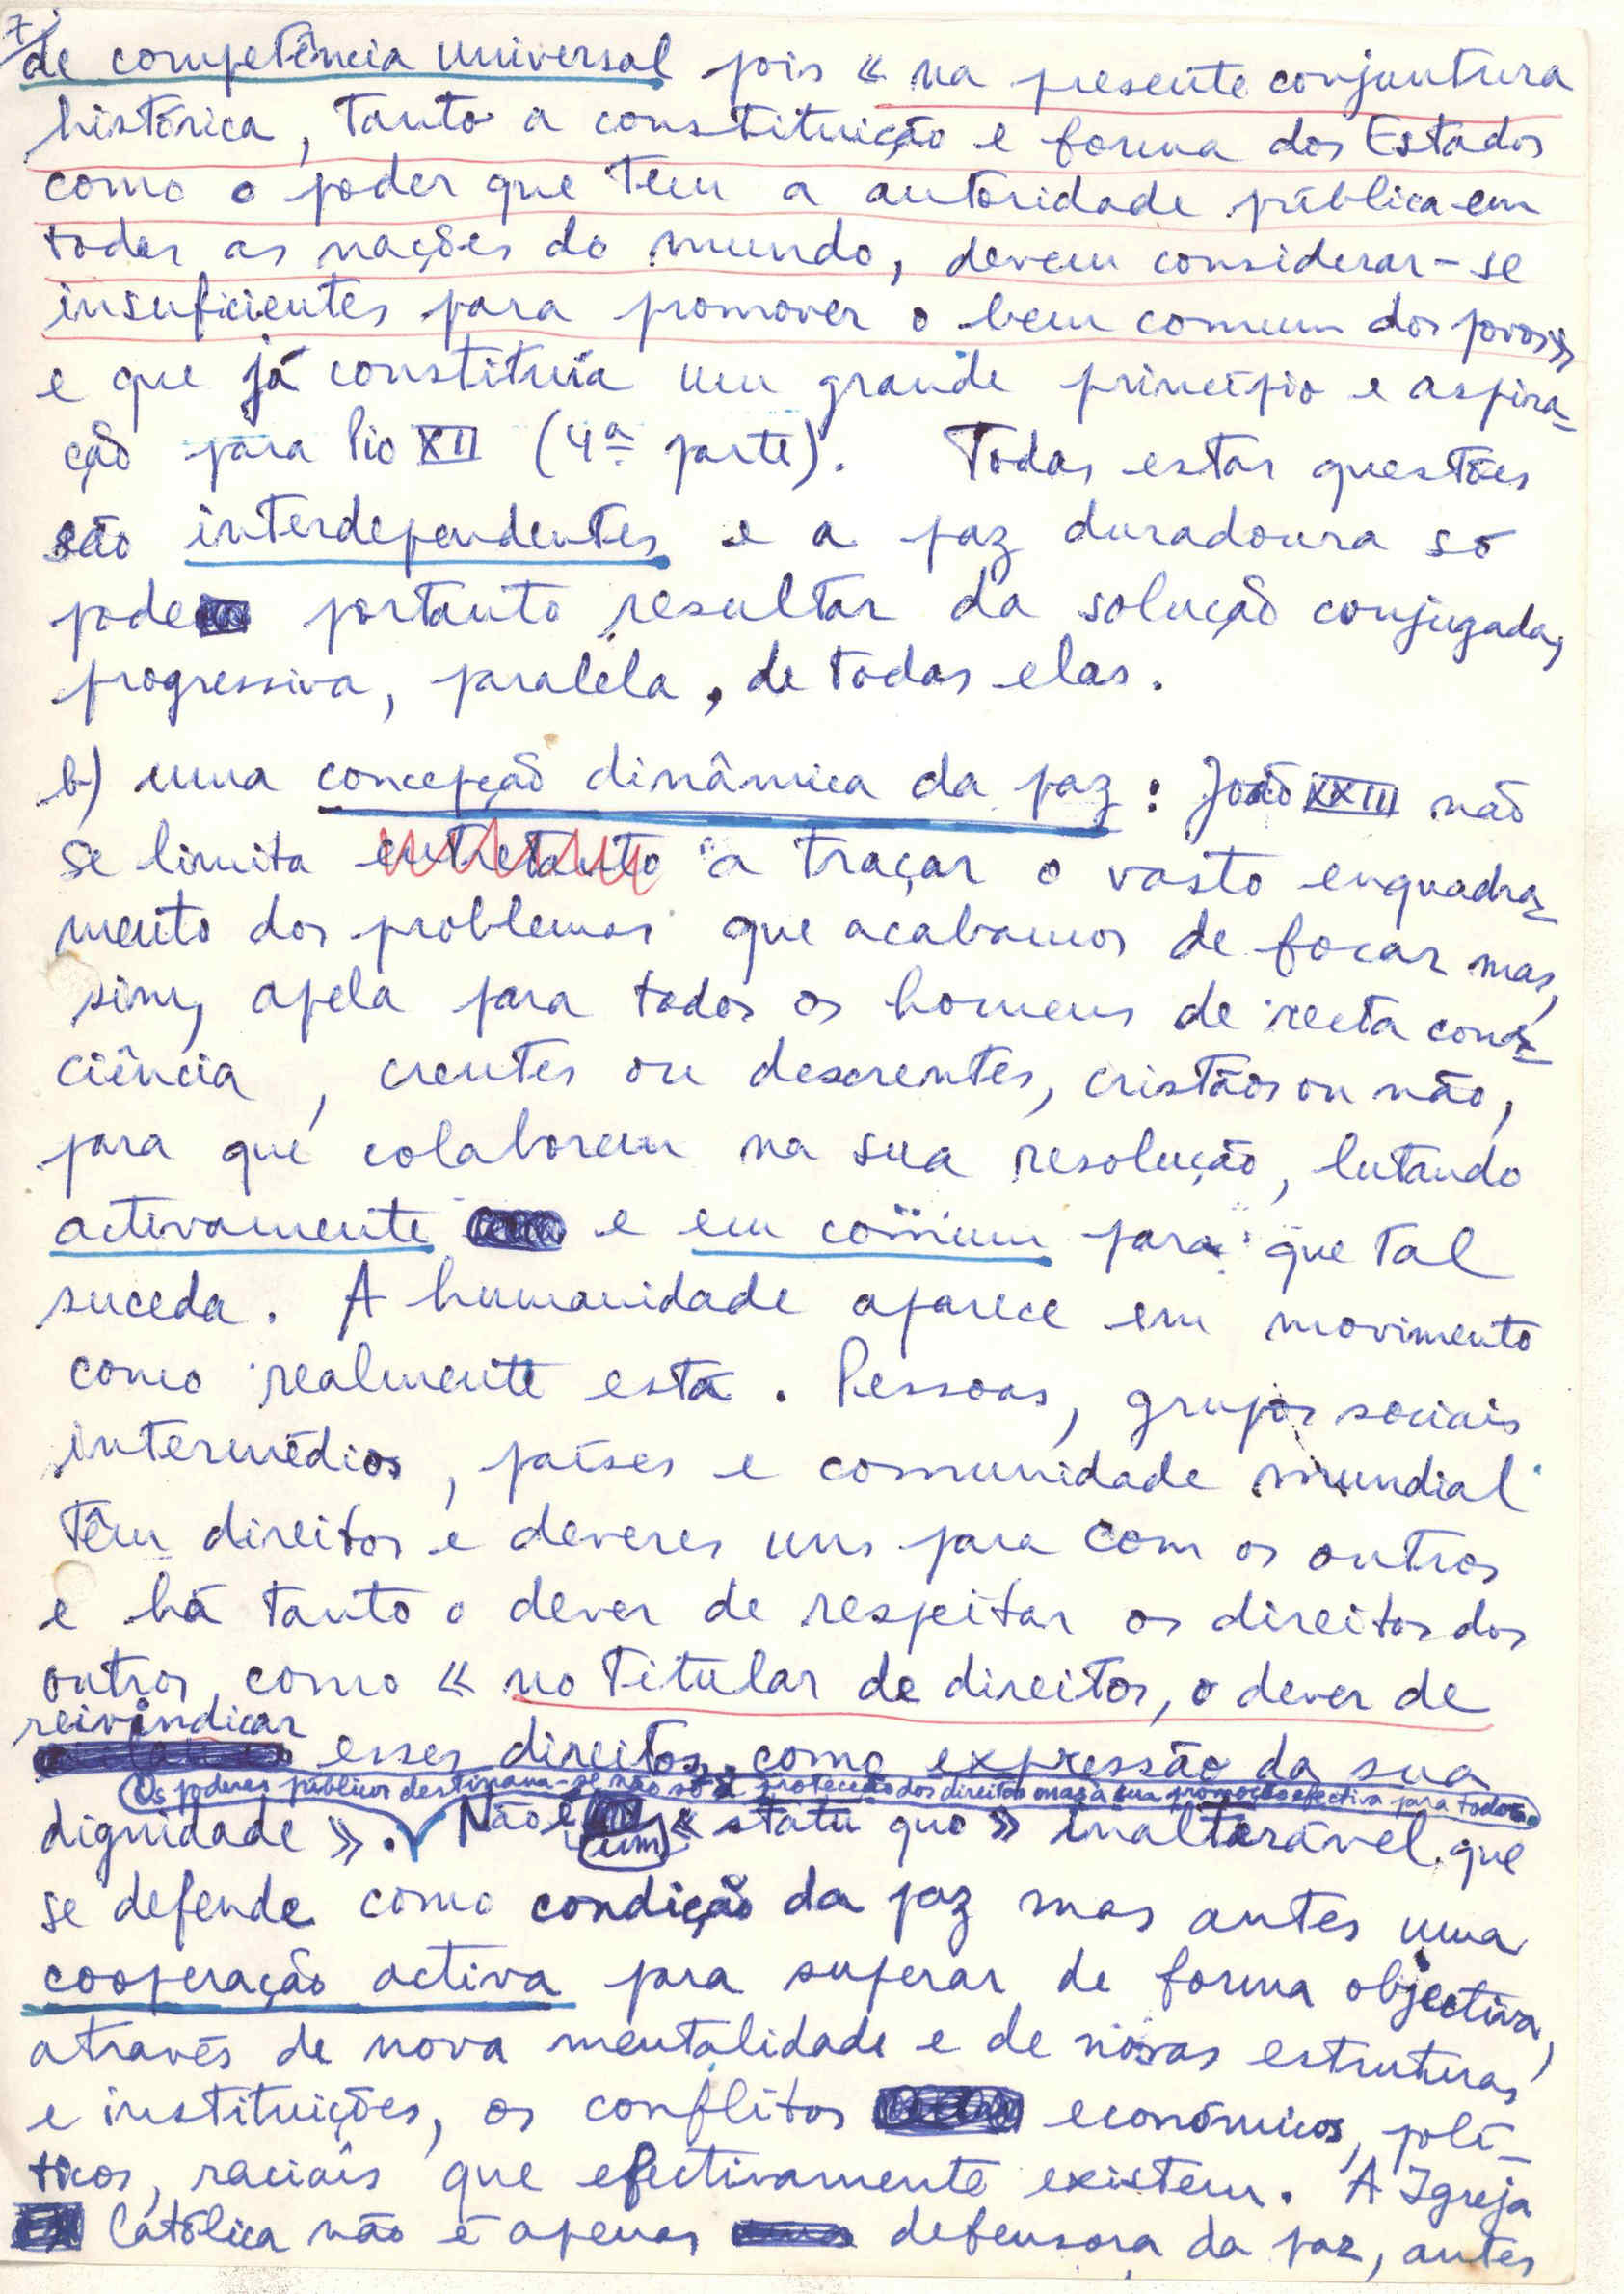 7
de competência universal pois « na presente conjuntura
histórica, tanto a constituição e forma dos Estados
como o poder que tem a autoridade pública em
todas as nações do mundo, devem considerar-se
insuficientes para promover o bem comum dos povos»
e que já constituía um grande princípio e aspira-
ção para Pio XII (4ª parte). Todas estas questões
são interdependentes e a paz duradoura só
pode portanto resultar da solução conjugada,
progressiva, paralela, de todas elas.
b) uma concepção dinâmica da paz: João XXIII não
se limita entretanto a traçar o vasto enquadra-
mento dos problemas que acabamos de focar mas,
sim, apela para todos os homens de recta cons-
ciência, crentes ou descrentes, cristãos ou não,
para que colaborem na sua resolução, lutando
activamente e em comum para que tal
suceda. A humanidade aparece em movimento
como realmente está. Pessoas, grupos sociais
intermédios, países e comunidade mundial
têm direitos e deveres uns para com os outros
e há tanto o dever de respeitar os direitos dos
outros como « no titular de direitos, o dever de
reivindicar
esses direitos, como expressão da sua
Os poderes públicos destinam-se não só à protecção dos direitos mas à sua promoção efectiva para todos.
dignidade ». Não é um « statu quo » inalterável que
se defende como condição da paz mas antes uma
cooperação activa para superar de forma objectiva,
através de nova mentalidade e de novas estruturas
e instituições, os conflitos económicos, polí-
ticos, raciais que efectivamente existem. A Igreja
Católica não é apenas defensora da paz, antes